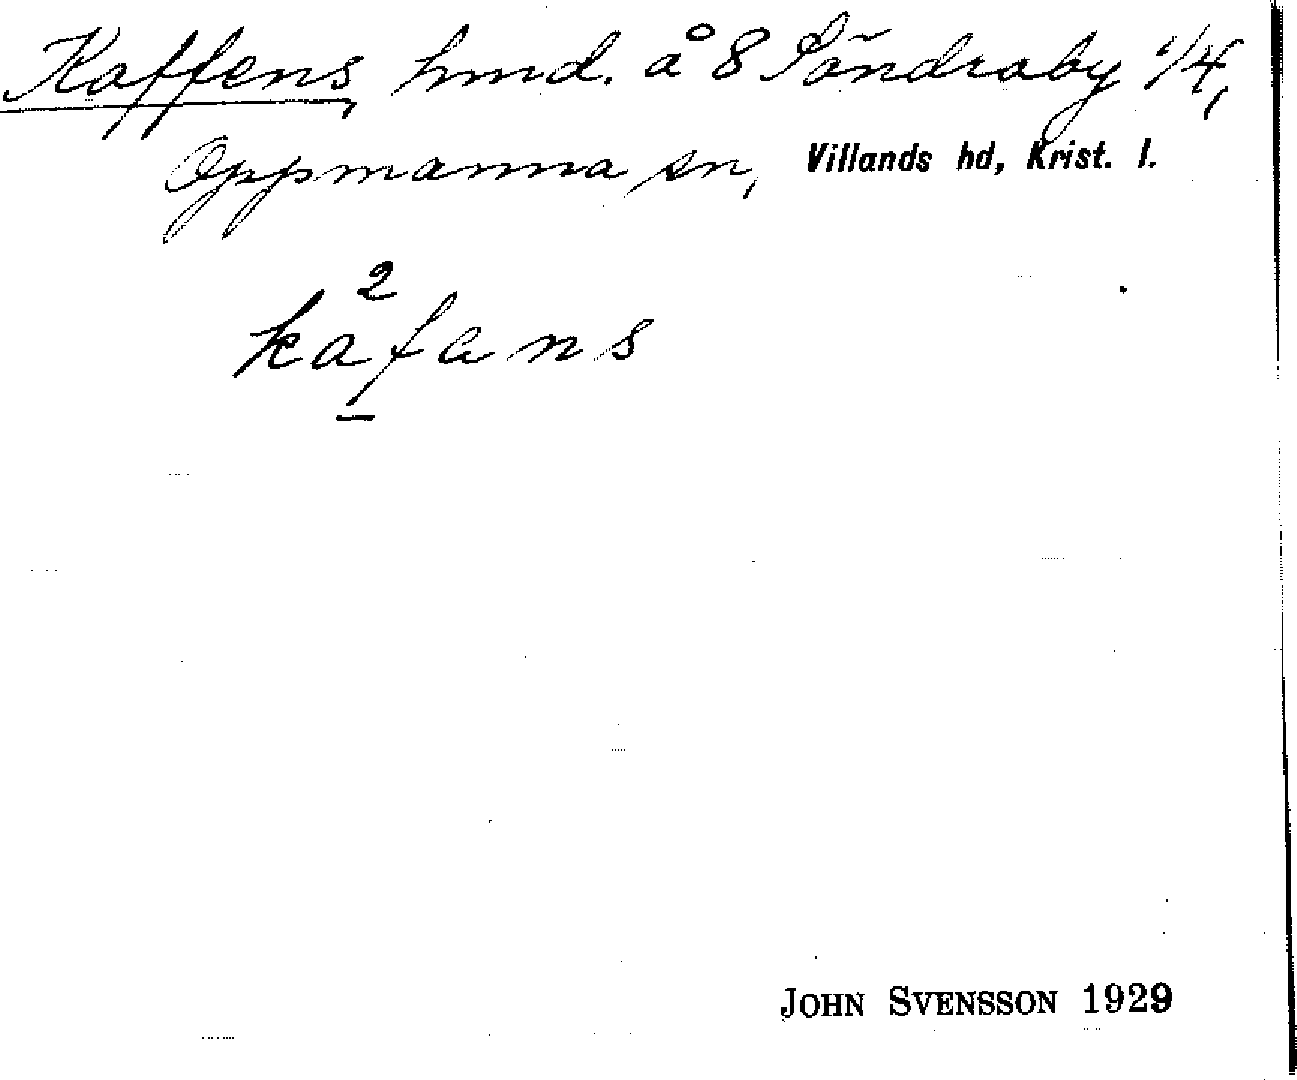 Kaffens, hmd. å 8 Söndraby 1/4,
Oppmanna sn, Villands hd, Krist. l.
ka²fans
JOHN SVENSSON 1929